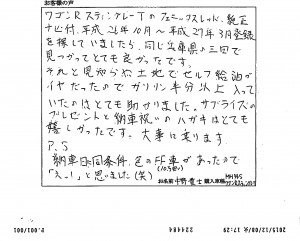 お客様の声
ワゴンRスティングレーTのフェニックスレッド、純正
ナビ付、平成26年10月〜平成27年3月登録
を探していましたら、同じ兵庫県の三田で
見つかってとても良かったです。
それと見知らぬ土地でセルフ給油が
イヤだったのでガソリン半分以上入って
いたのはとても助かりました。サプライズの
プレゼントと納車祝いのハガキはとても
嬉しかったです。大事に乗ります。
P.S
納車日同条件、色のFF車があったので
「えっ!」と思いました(笑)
お名前
購入車種
MH44S
P.001/001
221484
2015/12/08/火 17:29